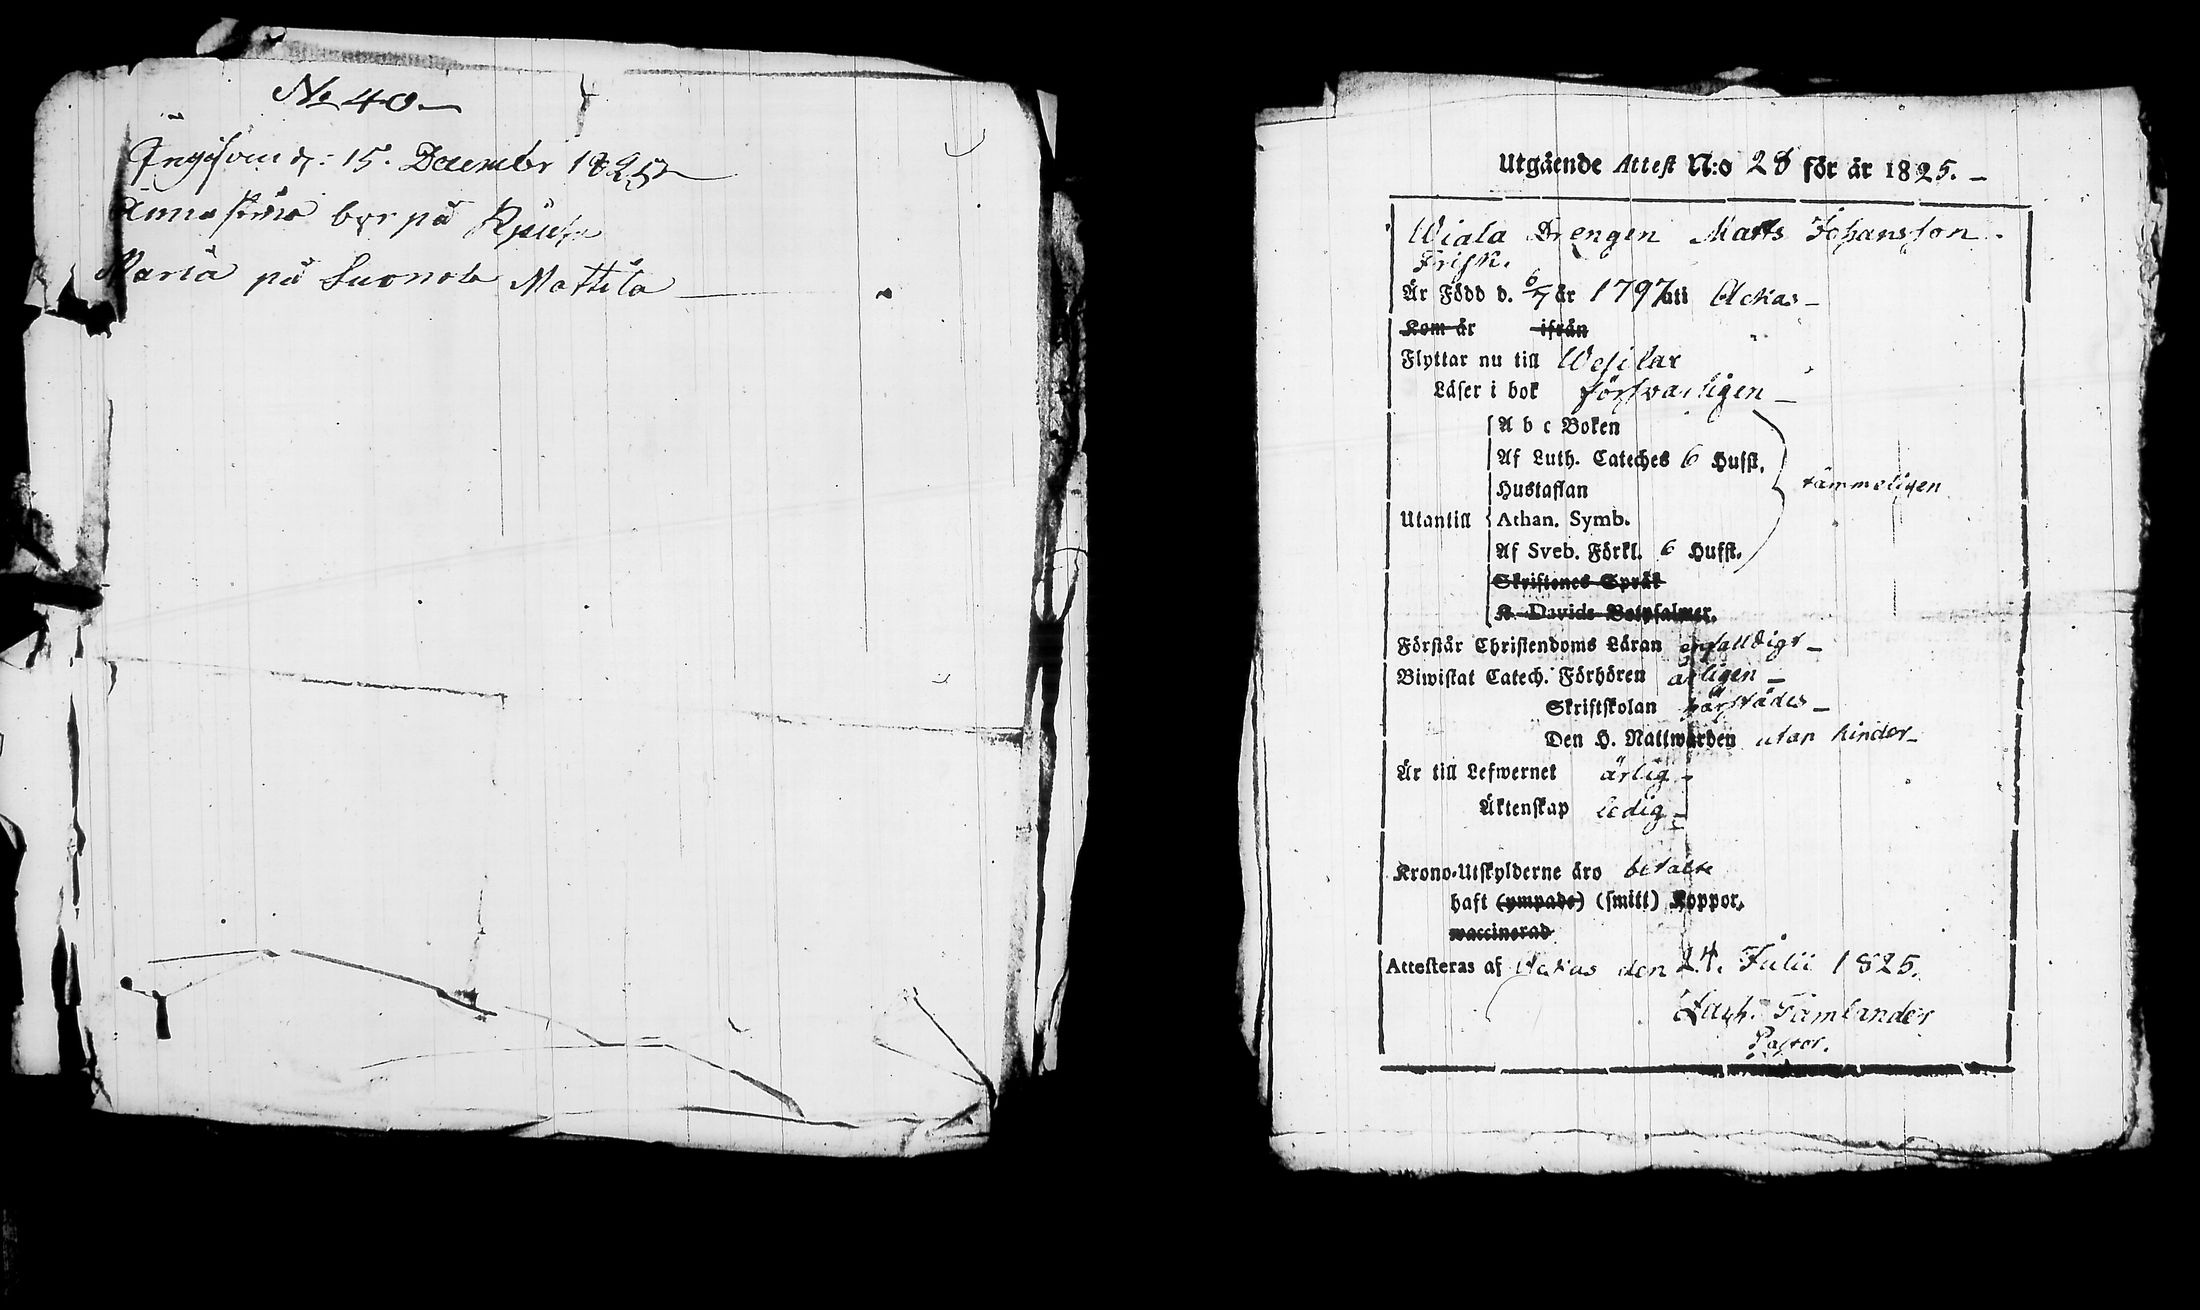 No 40.
Ingifven d: 15. December 1825
Anna Stina bor på
Maria på Suonola Mattila
Utgående Attest N:o 28 för år 1825.
Wiala Drengen Matts Johansson
Frisk.
Är Född d. 6/7 år 1797 uti Ackas
Kom år ifrån
Flyttar nu till Wesilax
Läser i bok förswarligen
A b c Boken
Af Luth. Cateches 6 Hufst.
Hustaflan
tämmeligen
Utantill Athan. Symb.
Af Sveb. Förkl. 6 Hufst.
Skriftenes Språk
K. Davids Botpsalmer.
Förstår Christendoms Läran enfalldigt
Biwistat Catech. Förhören årligen
Skriftskolan härstädes
Den H. Nattwarden utan hinder
Är till Lefwernet ärlig
Äktenskap ledig
Krono-Utskylderne äro betalte
haft (ympade) (smitt) Koppor.
waccinerad
Attesteras af Ackas den 24. Julii 1825.
Zach. Tamlander
Pastor.